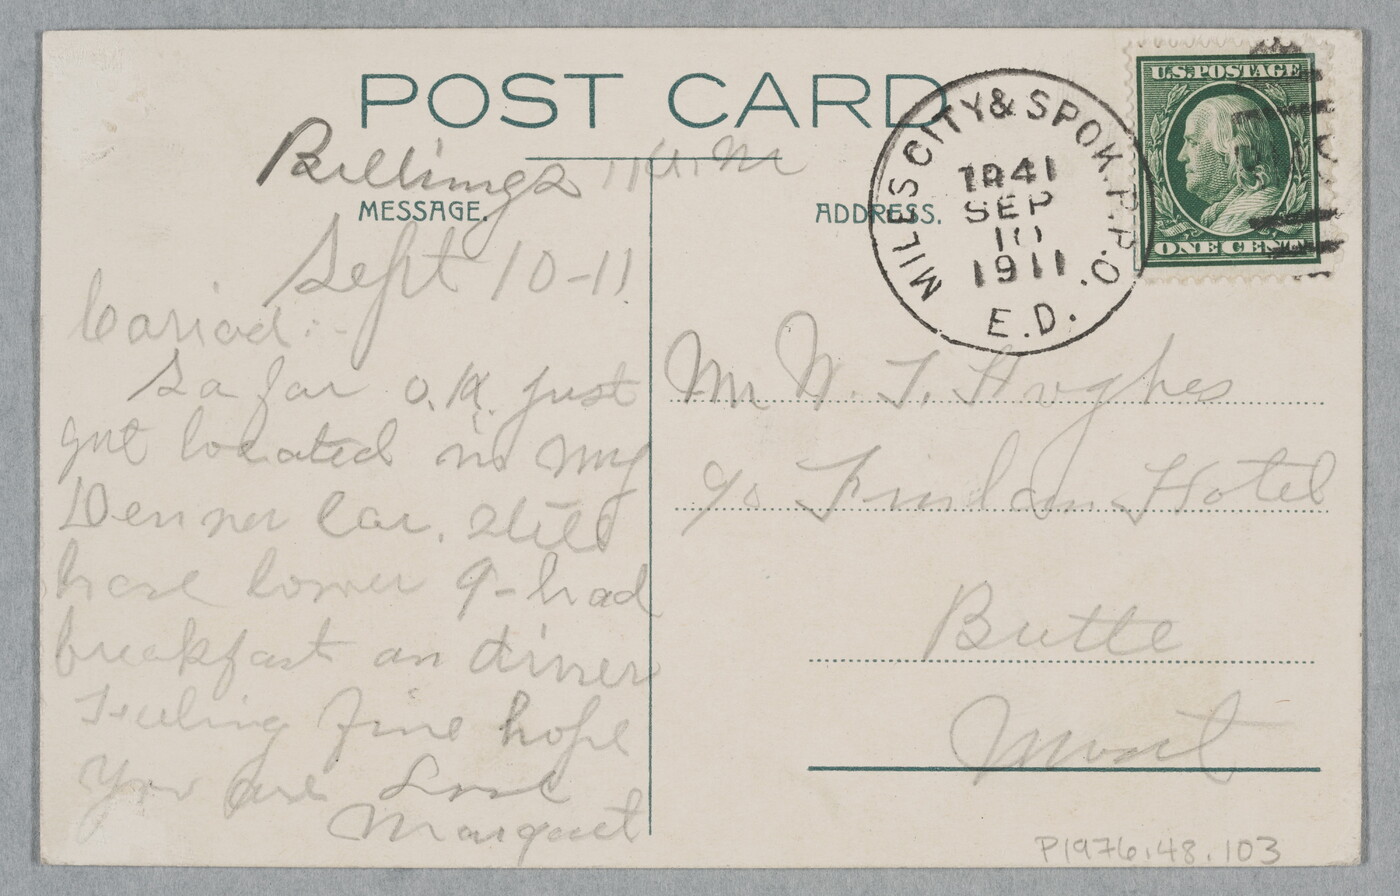 POST CARD
Billings 11 A.M
MESSAGE.
Sept 10-11
Cariad:-
So far O.K. just
got located in my
Denver Car. Still
have lower 9-had
breakfast on diner
Feeling fine hope
you are Love
Margaret
ADDRESS.
Mr W. T. Hughes
c/o Finlan Hotel
Butte
Mont
MILES CITY & SPOK. R.P.O.
TR 41
SEP
10
1911
E.D.
U.S. POSTAGE
ONE CENT
P1976.48.103